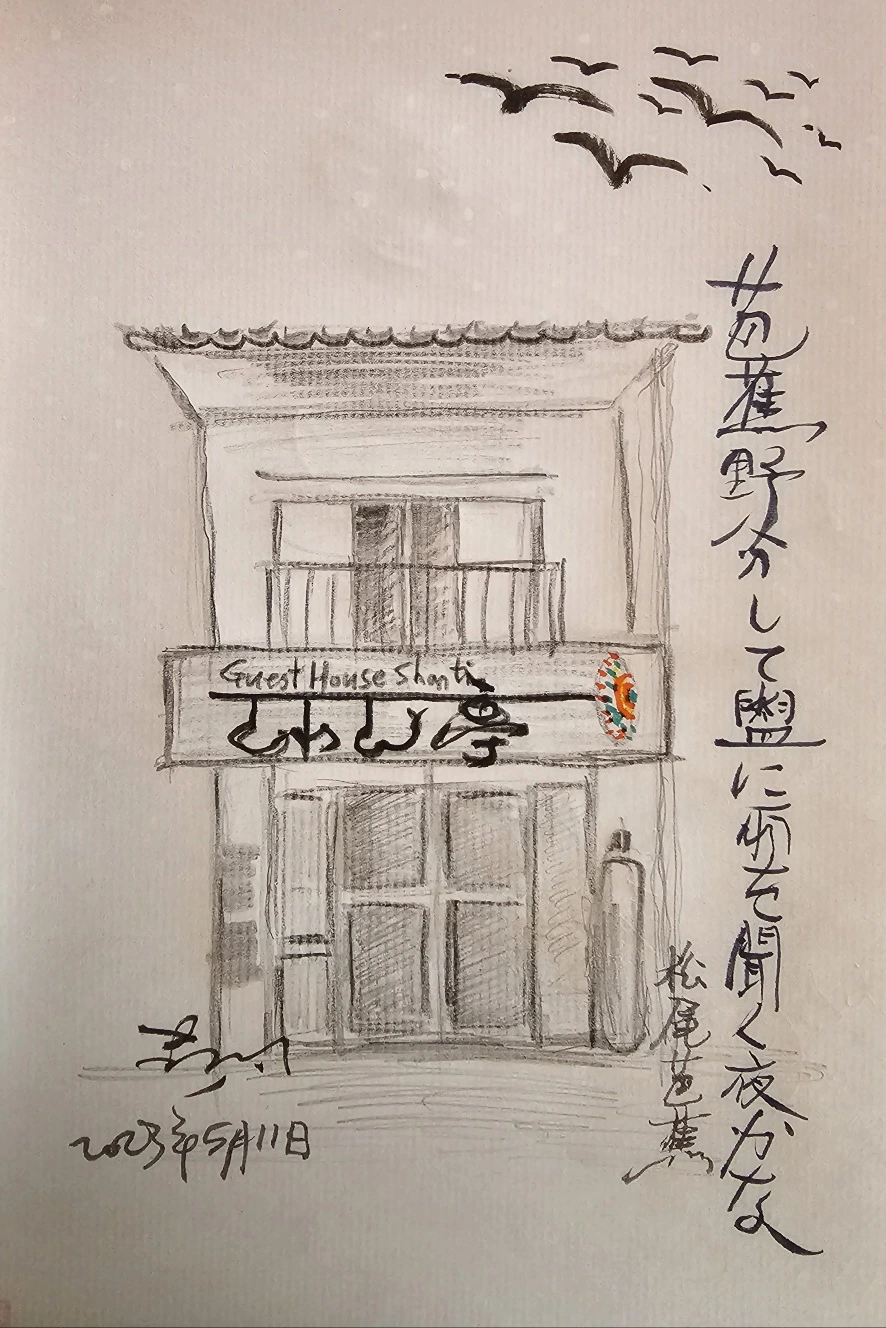 芭蕉野分して盥に雨を聞く夜かな
松尾芭蕉
Guest House Shanti
亭
2023年5月11日